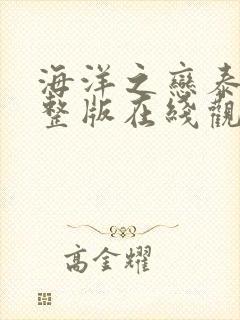 海洋之戀泰
整版在綫觀
高金耀